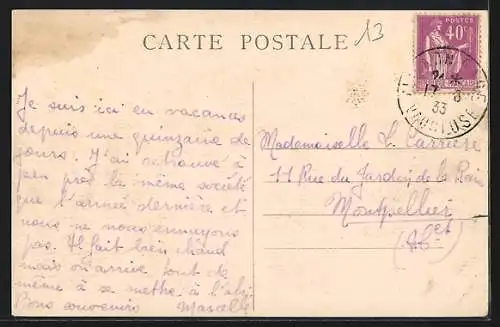 13
CARTE POSTALE
POSTES
40c
33
VAUCLUSE
Je suis ici en vacances
depuis une quinzaine de
jours. J'ai retrouvé à
peu près la même société
que l'année dernière et
nous ne nous ennuyons
pas. Il fait bien chaud
mais on arrive tout de
même à se mettre à l'abri
Bons souvenirs Marcelle
Mademoiselle L. Carrière
11 Rue du Jardin de la Reine
Montpellier